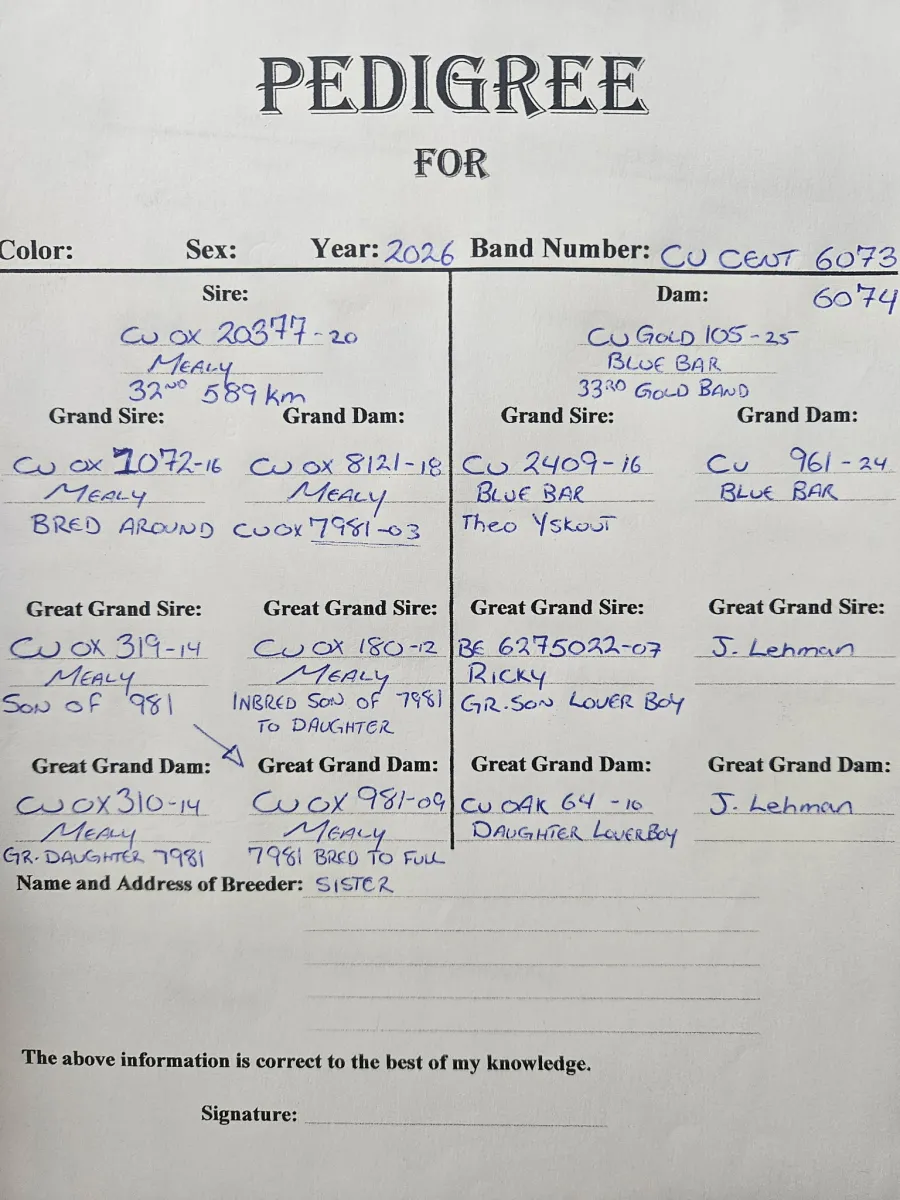 PEDIGREE
FOR
Color: Sex: Year: 2026 Band Number: CU CENT 6073
6074
Sire: Dam:
CU OX 20377-20 CU GOLD 105-25
MEALY BLUE BAR
32ND 589 km 33RD GOLD BAND
Grand Sire: Grand Dam: Grand Sire: Grand Dam:
CU OX 1072-16 CU OX 8121-18 CU 2409-16 CU 961-24
MEALY MEALY BLUE BAR BLUE BAR
BRED AROUND CU OX 7981-03 Theo YSKOUT
Great Grand Sire: Great Grand Sire: Great Grand Sire: Great Grand Sire:
CU OX 319-14 CU OX 180-12 BE 6275022-07 J. Lehman
MEALY MEALY RICKY
SON OF '981 INBRED SON OF 7981 GR.SON LOVER BOY
TO DAUGHTER
Great Grand Dam: Great Grand Dam: Great Grand Dam: Great Grand Dam:
CU OX 310-14 CU OX 981-09 CU OAK 64-10 J. Lehman
MEALY MEALY DAUGHTER LOVERBOY
GR. DAUGHTER 7981 7981 BRED TO FULL
Name and Address of Breeder: SISTER
The above information is correct to the best of my knowledge.
Signature: